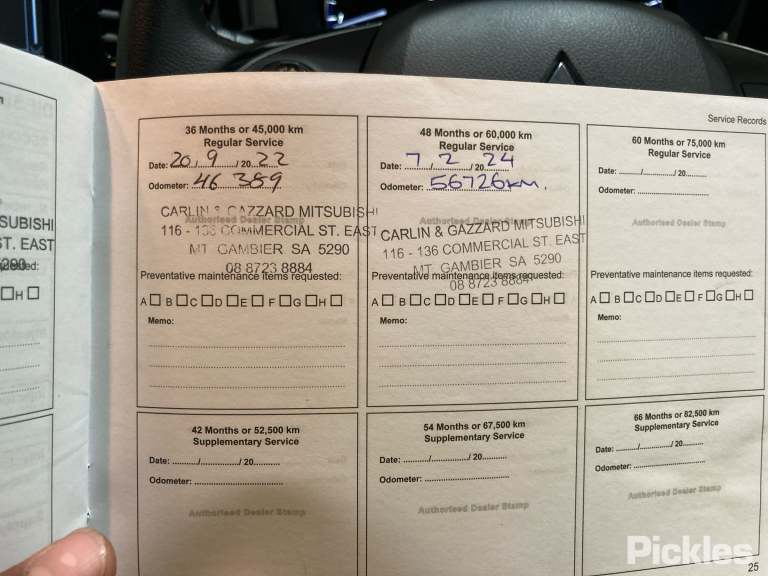 Service Records
SUBISHI
ST. EAST
5290
H
36 Months or 45,000 km
Regular Service
Date: 20/9/2022
Odometer: 46 389
CARLIN & GAZZARD MITSUBISHI
Authorised Dealer Stamp
116 - 136 COMMERCIAL ST. EAST
MT GAMBIER SA 5290
08 8723 8884
Preventative maintenance items requested:
A B C D E F G H
Memo:
48 Months or 60,000 km
Regular Service
Date: 7/2/2024
Odometer: 56726km.
CARLIN & GAZZARD MITSUBISHI
116 - 136 COMMERCIAL ST. EAST
MT. GAMBIER SA 5290
Preventative maintenance items requested:
08 8723 8884
A B C D E F G H
Memo:
60 Months or 75,000 km
Regular Service
Date: ........./............/ 20..........
Odometer: ................................
Authorised Dealer Stamp
Preventative maintenance items requested:
A B C D E F G H
Memo:
42 Months or 52,500 km
Supplementary Service
Date: ........./............/ 20..........
Odometer: ................................
Authorised Dealer Stamp
54 Months or 67,500 km
Supplementary Service
Date: ........./............/ 20..........
Odometer: ................................
Authorised Dealer Stamp
66 Months or 82,500 km
Supplementary Service
Date: ........./............/ 20..........
Odometer: ................................
Authorised Dealer Stamp
Pickles
25